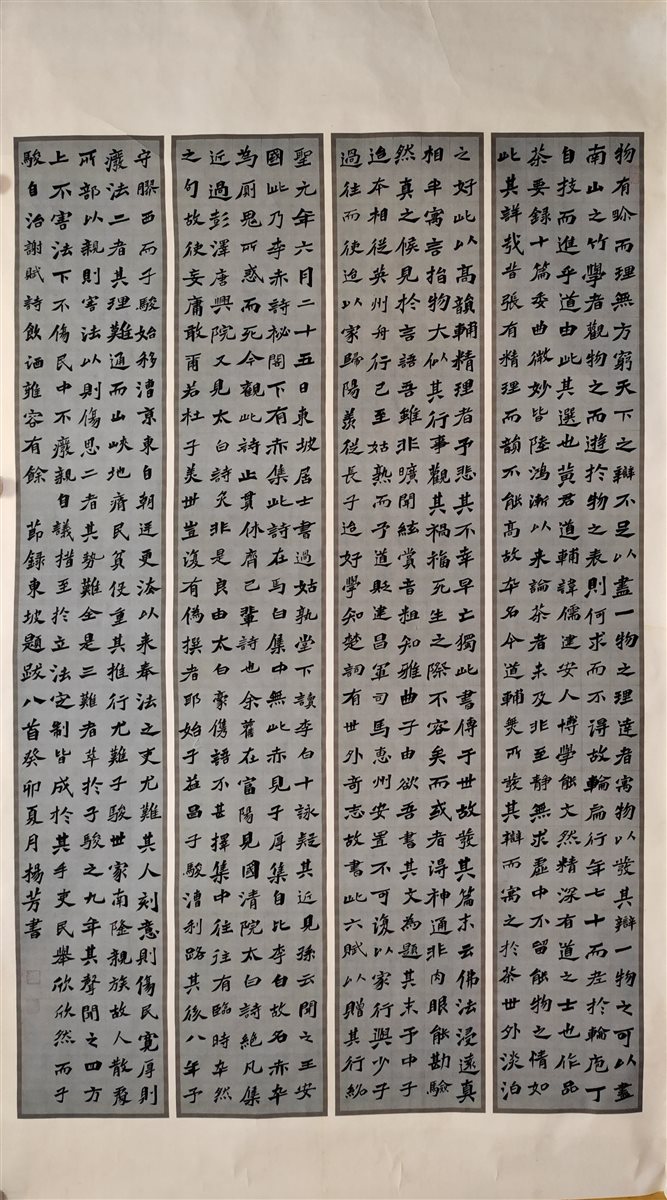 物有畛而理無方窮天下之辯不足以盡一物之理達者寓物以發其辯一物之可以盡
南山之竹學者觀物之而遊於物之表則何求而不得故輪扁行年七十而老於輪庖丁
自技而進乎道由此其選也黃君道輔諱儒建安人博學能文然精深有道之士也作品
茶要錄十篇委曲微妙皆陸鴻漸以來論茶者未及非至靜無求虛中不留能物之情如
此其詳哉昔張有精理而韻不能高故卒名今道輔無所發其辯而寓之於茶世外淡泊
之好此以高韻輔精理者予悲其不幸早亡獨此書傳于世故發其篇末云佛法浸遠真
相半寓言指物大似其行事觀其禍福死生之際不容矣而或者得神通非肉眼能勘驗
然真之候見於言語吾雖非曠聞絃賞音粗知雅曲子由欲吾書其文為題其末予中子
迨本相從英州舟行已至姑熟而予道貶建昌軍司馬惠州安置不可復以家行與少子
過往而使迨以家歸陽羨從長子迨好學知楚詞有世外奇志故書此六賦以贈其行紹
聖元年六月二十五日東坡居士書過姑孰堂下讀李白十詠疑其近見孫云聞之王安
國此乃李赤詩祕閣下有赤集此詩在焉白集中無此赤見子厚集自比李白故名赤卒
為廁鬼所惑而死今觀此詩止貫休齊己輩詩也余舊在富陽見國清院太白詩絕凡集
近過彭澤唐興院又見太白詩矣非是良由太白豪儁語不甚擇集中往往有臨時卒然
之句故使妄庸敢爾若杜子美世豈復有偽撰者耶始子益昌子駿漕利路其後八年予
守膠西而子駿始移漕京東自朝廷更法以來奉法之吏尤難其人刻意則傷民寬厚則
廢法二者其理難通而山峽地瘠民貧役重其推行尤難子駿世家南隆親族故人散處
所部以親則害法以則傷恩二者其勢難全是三難者萃於子駿之九年其聲聞之四方
上不害法下不傷民中不廢親自議措至於立法定制皆成於其手吏民舉欣欣然而子
駿自治謝賦詩飲酒雍容有餘 節錄東坡題跋八首癸卯夏月揚芳書